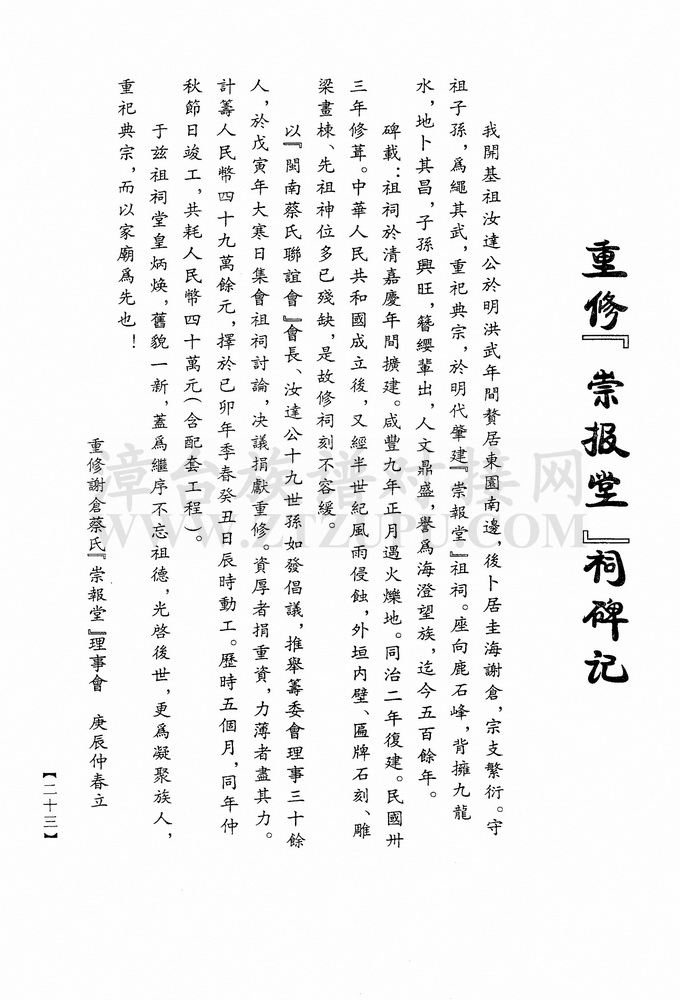 重修『崇报堂』祠碑记
我開基祖汝達公於明洪武年間贅居東園南邊，後卜居圭海謝倉，宗支繁衍。守
祖子孫，爲繩其武，重祀典宗，於明代肇建『崇報堂』祖祠。座向鹿石峰，背擁九龍
水，地卜其昌，子孫興旺，簪纓輩出，人文鼎盛，譽爲海澄望族，迄今五百餘年。
碑載：祖祠於清嘉慶年間擴建。咸豐九年正月遇火爍地。同治二年復建。民國卅
三年修葺。中華人民共和國成立後，又經半世紀風雨侵蝕，外垣内壁、匾牌石刻、雕
梁畫棟、先祖神位多已殘缺，是故修祠刻不容緩。
以『閩南蔡氏聯誼會』會長、汝達公十九世孫如發倡議，推舉籌委會理事三十餘
人，於戊寅年大寒日集會祖祠討論，决議捐獻重修。資厚者捐重資，力薄者盡其力。
計籌人民幣四十九萬餘元，擇於己卯年季春癸丑日辰時動工。歷時五個月，同年仲
秋節日竣工，共耗人民幣四十萬元（含配套工程）。
于兹祖祠堂皇炳焕，舊貌一新，蓋爲繼序不忘祖德，光啓後世，更爲凝聚族人，
重祀典宗，而以家廟爲先也！
重修謝倉蔡氏『崇報堂』理事會 庚辰仲春立
【二十三】
漳台族谱对接网
WWW.ZTZUPU.COM